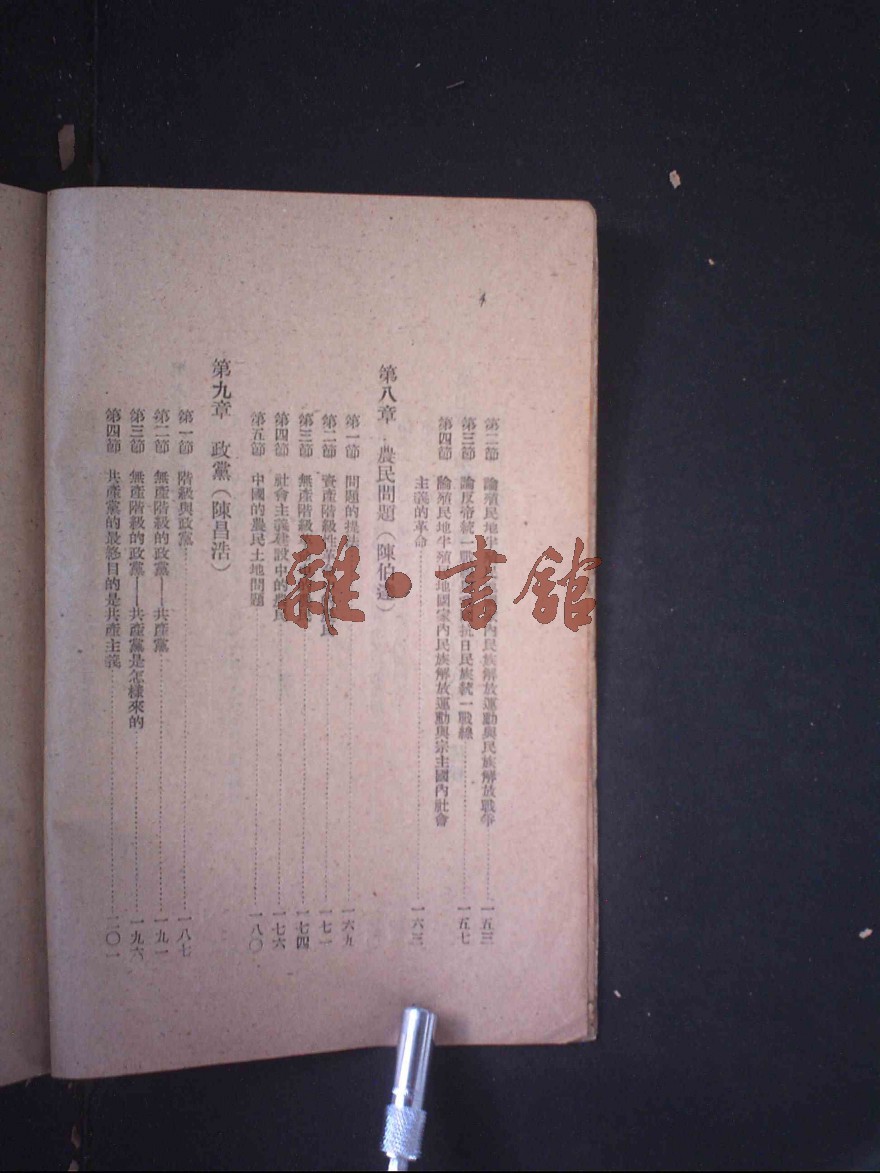 第二節 論殖民地半 內民族解放運動與民族解放戰爭……一五三
第三節 論反帝統一戰 抗日民族統一戰線……一五七
第四節 論殖民地半殖民地國家內民族解放運動與宗主國內社會
主義的革命……一六三
第八章 農民問題（陳伯達）
第一節 問題的提法……一六九
第二節 資產階級性革 民……一七一
第三節 無產階級……一七四
第四節 社會主義建設中的農民……一七六
第五節 中國的農民土地問題……一八〇
第九章 政黨（陳昌浩）
第一節 階級與政黨……一八七
第二節 無產階級的政黨——共產黨……一九一
第三節 無產階級的政黨——共產黨是怎樣來的……一九六
第四節 共產黨的最終目的是共產主義……二〇一
雜·書館